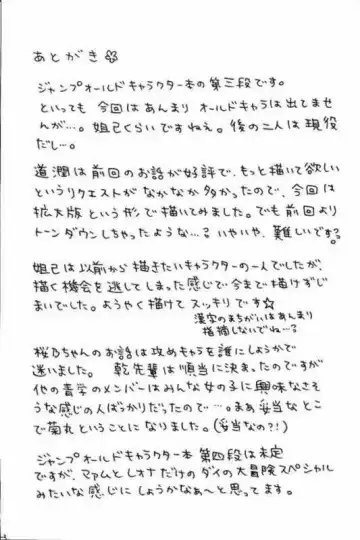 あとがき
ジャンプオールドキャラクター本の第三段です。
といっても 今回はあんまり オールドキャラは出てませ
んが…。妲己くらいですねえ。後の二人は現役
だし…。
道潤は前回のお話が好評で、もっと描いて欲しい
というリクエストが なかなか多かったので、今回は
拡大版という形で描いてみました。でも前回より
トーンダウンしちゃったような…? いやいや、難しいですね?
妲己は以前から描きたいキャラクターの一人でしたが、
描く機会を逃してしまった感じで今まで描けずじ
まいでした。ようやく描けてスッキリです☆
漢字のまちがいはあんまり
指摘しないでね…?
桜乃ちゃんのお話は攻めキャラを誰にしようかで
迷いました。 乾先輩は順当に決まったのですが
他の青学のメンバーはみんな女の子に興味なさそ
うな感じの人ばっかりだったので…。まあ妥当なとこ
で菊丸ということになりました。(妥当なの?!)
ジャンプオールドキャラクター本 第四段は未定
ですが、マァムとレオナだけのダイの大冒険スペシャル
みたいな感じにしようかなあ〜と思ってます。